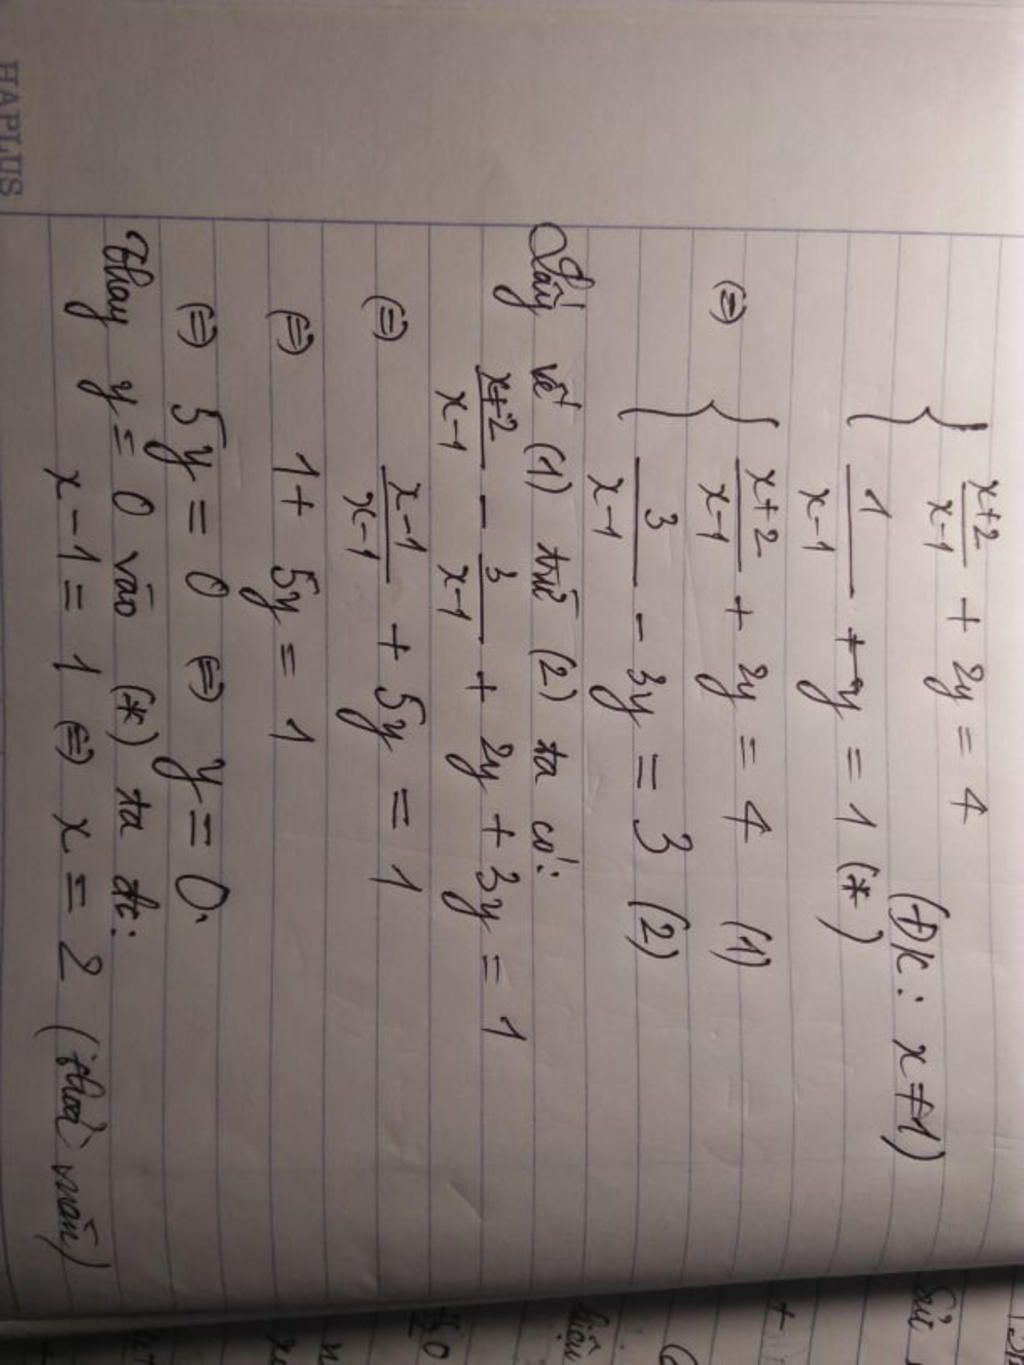 HAPLUS
{ x+2/x-1 + 2y = 4
(ĐK: x≠1)
1/x-1 - y = 1 (*)
(=) { x+2/x-1 + 2y = 4 (1)
3/x-1 - 3y = 3 (2)
Lấy vế (1) trừ (2) ta có:
x+2/x-1 - 3/x-1 + 2y + 3y = 1
(=) x-1/x-1 + 5y = 1
(=) 1 + 5y = 1
(=) 5y = 0 (=) y = 0.
Thay y = 0 vào (*) ta đc:
x-1 = 1 (=) x = 2 (thoả mãn)